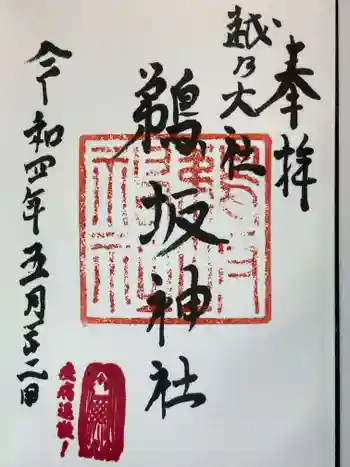 奉拝
越乃大社
鵜坂神社
令和四年五月十二日
疫病退散!